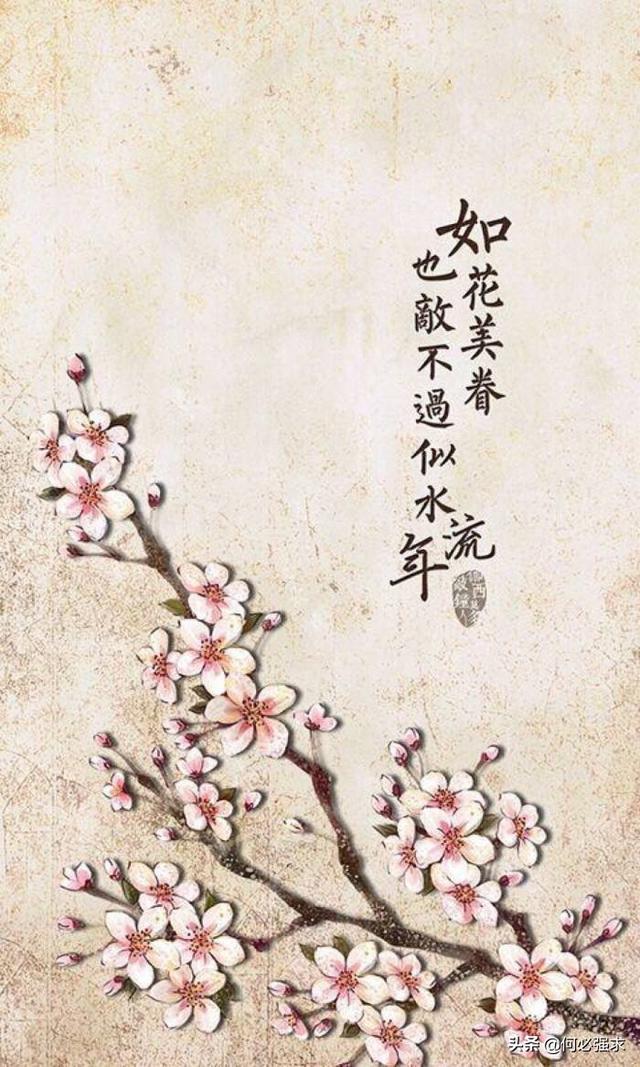 如花美眷
也敵不過似水流年
头条 @何必强求